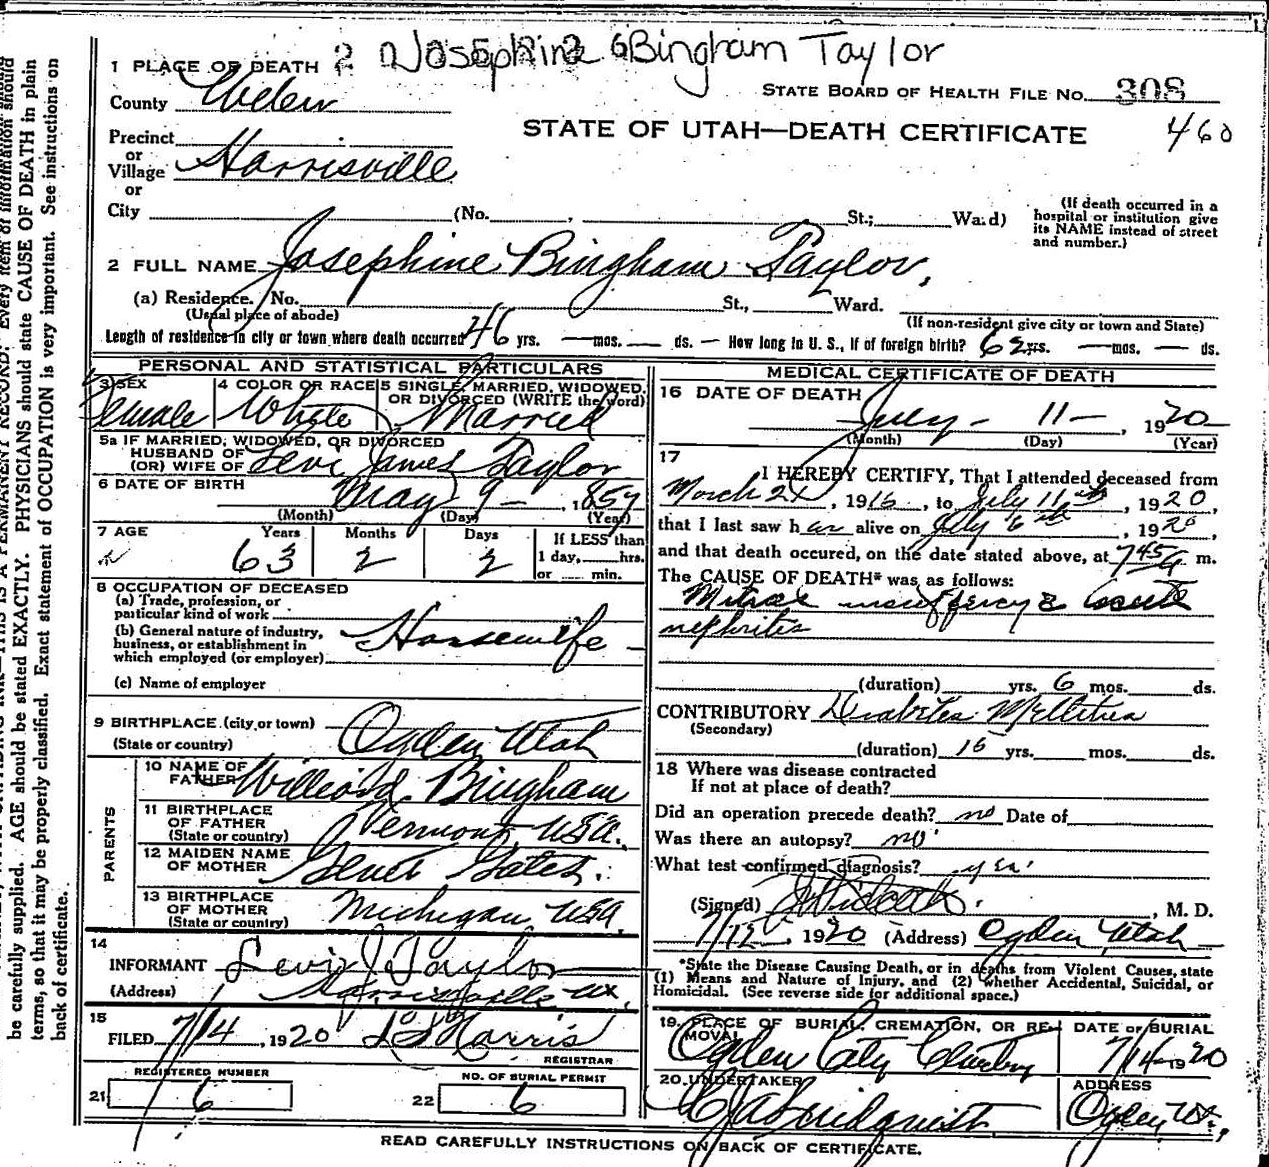 Josephine Bingham Taylor
1 PLACE OF DEATH
County Weber
STATE BOARD OF HEALTH FILE No. 308
460
STATE OF UTAH—DEATH CERTIFICATE
Precinct
or
Village Harrisville
or
City (No. , St.; Ward)
(If death occurred in a hospital or institution give its NAME instead of street and number.)
2 FULL NAME Josephine Bingham Taylor,
(a) Residence. No. St., Ward.
(Usual place of abode)
(If non-resident give city or town and State)
Length of residence in city or town where death occurred 46 yrs. — mos. — ds. — How long in U. S., if of foreign birth? 62 yrs. — mos. — ds.
PERSONAL AND STATISTICAL PARTICULARS
3 SEX
Female
4 COLOR OR RACE
White
5 SINGLE, MARRIED, WIDOWED, OR DIVORCED (WRITE the word)
Married
5a IF MARRIED, WIDOWED, OR DIVORCED
HUSBAND OF
(OR) WIFE OF Levi James Taylor
6 DATE OF BIRTH May 9 — , 1857
(Month) (Day) (Year)
7 AGE
Years Months Days
63 2 2
If LESS than
1 day, hrs.
or min.
8 OCCUPATION OF DECEASED
(a) Trade, profession, or
particular kind of work
Housewife
(b) General nature of industry,
business, or establishment in
which employed (or employer)
(c) Name of employer
9 BIRTHPLACE (city or town)
(State or country) Ogden Utah
PARENTS
10 NAME OF
FATHER Willard Bingham
11 BIRTHPLACE
OF FATHER
(State or country) Vermont, USA.
12 MAIDEN NAME
OF MOTHER Gates.
13 BIRTHPLACE
OF MOTHER
(State or country) Michigan USA
14
INFORMANT Levi J Taylor
(Address) Harrisville Ut.
15
FILED 7/14, 1920 Harris
REGISTRAR
REGISTERED NUMBER
21 6
NO. OF BURIAL PERMIT
22 6
MEDICAL CERTIFICATE OF DEATH
16 DATE OF DEATH
July - 11 — , 1920
(Month) (Day) (Year)
17
I HEREBY CERTIFY, That I attended deceased from
March 21, 1916, to July 11th, 1920,
that I last saw her alive on July 6th, 1920,
and that death occured, on the date stated above, at 745 A m.
The CAUSE OF DEATH* was as follows:
Mitral insufficency & acute
nephritis
(duration) yrs. 6 mos. ds.
CONTRIBUTORY Diabetes Mellitus
(Secondary)
(duration) 15 yrs. mos. ds.
18 Where was disease contracted
If not at place of death?
Did an operation precede death? no Date of
Was there an autopsy? no
What test confirmed diagnosis? yes
(Signed) , M. D.
7/12, 1920 (Address) Ogden Utah
*State the Disease Causing Death, or in deaths from Violent Causes, state
(1) Means and Nature of Injury, and (2) whether Accidental, Suicidal, or
Homicidal. (See reverse side for additional space.)
19. PLACE OF BURIAL, CREMATION, OR REMOVAL
Ogden City
DATE OF BURIAL
7/14 1920
20. UNDERTAKER
ADDRESS
Ogden Ut.
READ CAREFULLY INSTRUCTIONS ON BACK OF CERTIFICATE.
be carefully supplied. AGE should be stated EXACTLY. PHYSICIANS should state CAUSE OF DEATH in plain
terms, so that it may be properly classified. Exact statement of OCCUPATION is very important. See instructions on
back of certificate.